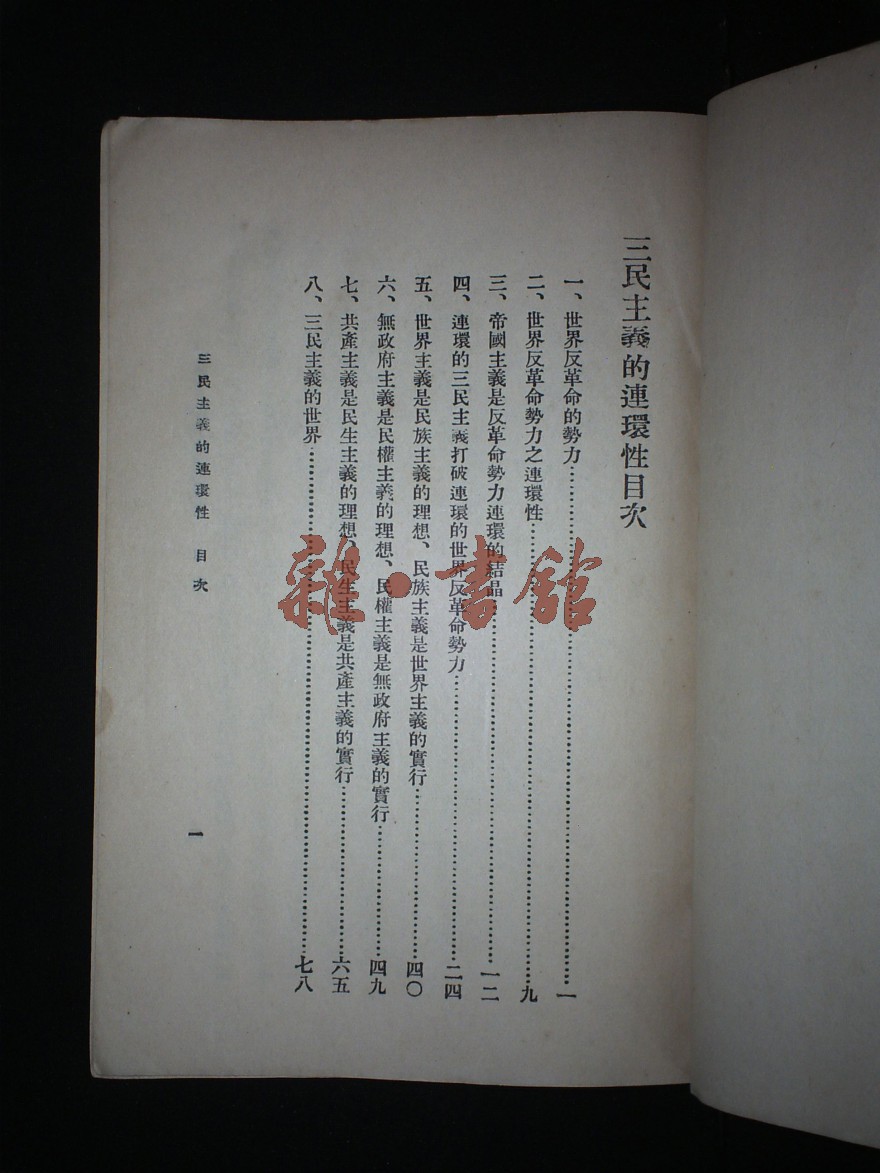 三民主義的連環性目次
一、世界反革命的勢力……一
二、世界反革命勢力之連環性……九
三、帝國主義是反革命勢力連環的結晶……一二
四、連環的三民主義打破連環的世界反革命勢力……二四
五、世界主義是民族主義的理想、民族主義是世界主義的實行……四〇
六、無政府主義是民權主義的理想、民權主義是無政府主義的實行……四九
七、共產主義是民生主義的理想、民生主義是共產主義的實行……六五
八、三民主義的世界……七八
三民主義的連環性 目次
一
雜·書館